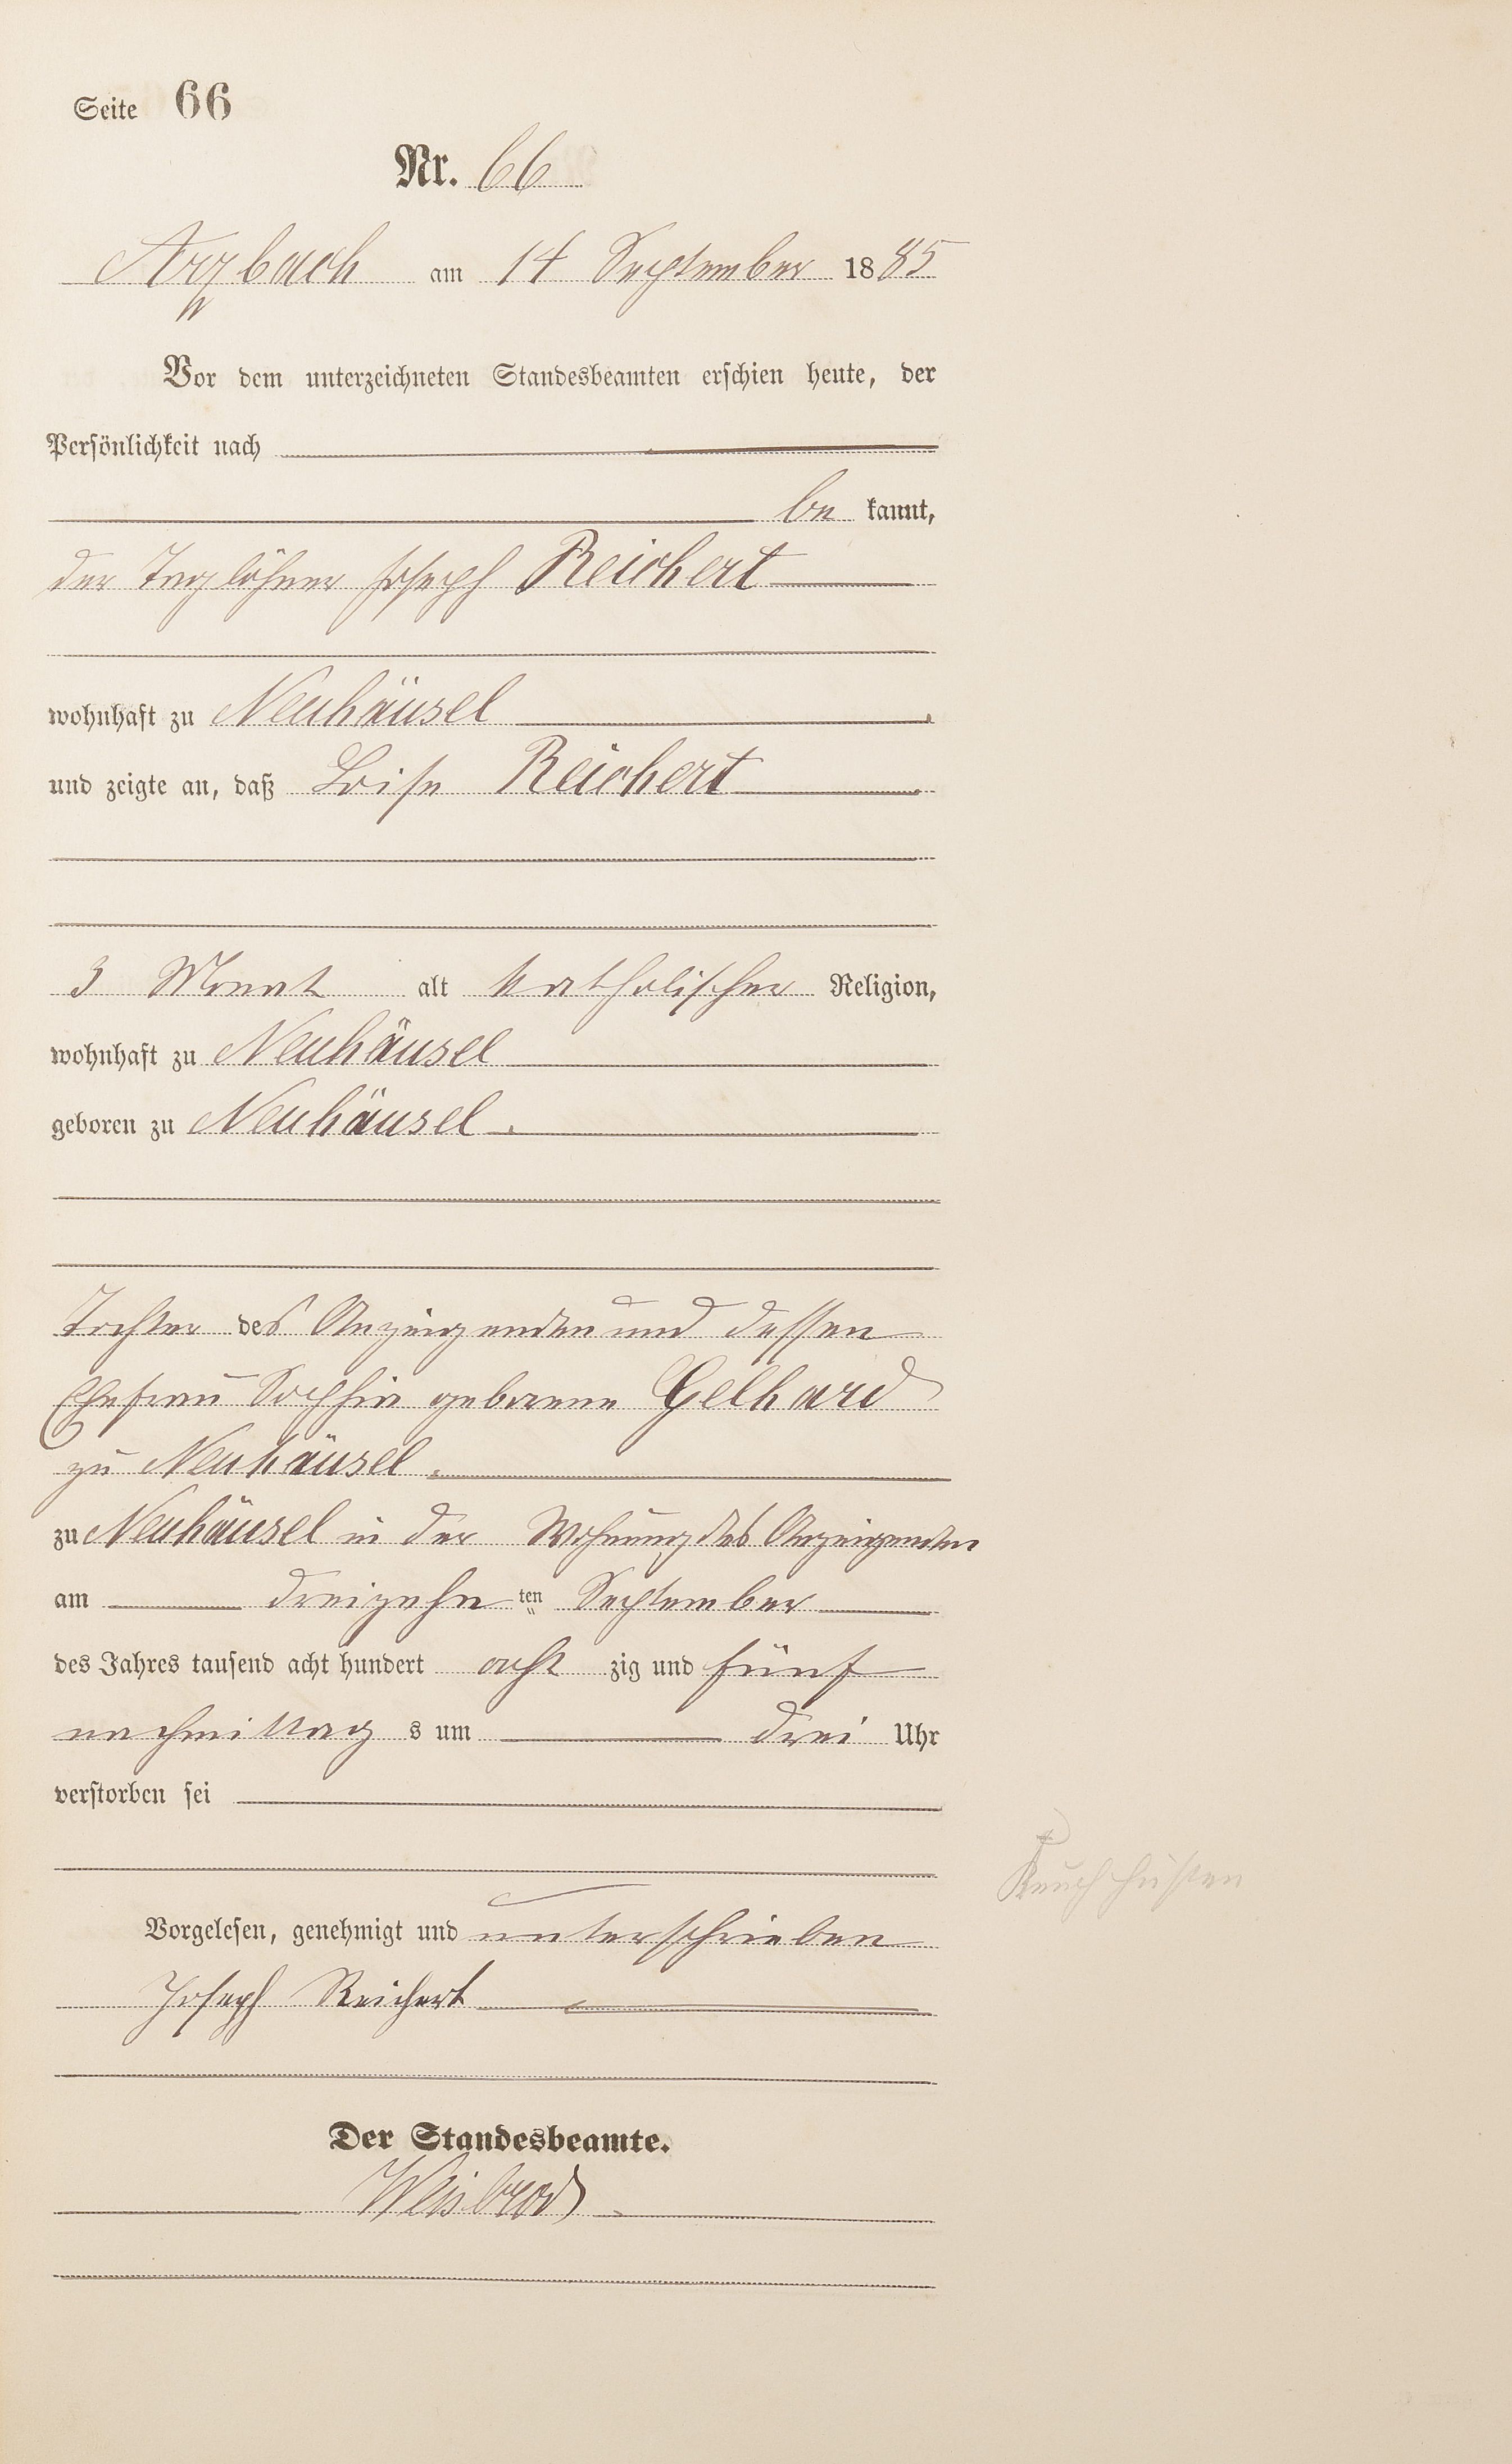 Seite 66
Nr. 66
Arzbach am 14 September 1885
Vor dem unterzeichneten Standesbeamten erschien heute, der
Persönlichkeit nach
be kannt,
der Taglöhner Joseph Reichert
wohnhaft zu Neuhäusel
und zeigte an, daß Loise Reichert
3 Monat alt katholischer Religion,
wohnhaft zu Neuhäusel
geboren zu Neuhäusel.
Tochter des Anzeigenden und dessen
Ehefrau Sophia geborene Gelhard
zu Neuhäusel.
zu Neuhäusel in der Wohnung des Anzeigenden
am dreizehn ten September
des Jahres tausend acht hundert acht zig und fünf
nachmittag s um drei Uhr
verstorben sei
Keuchhusten
Vorgelesen, genehmigt und unterschrieben
Joseph Reichert
Der Standesbeamte.
Weisbrod